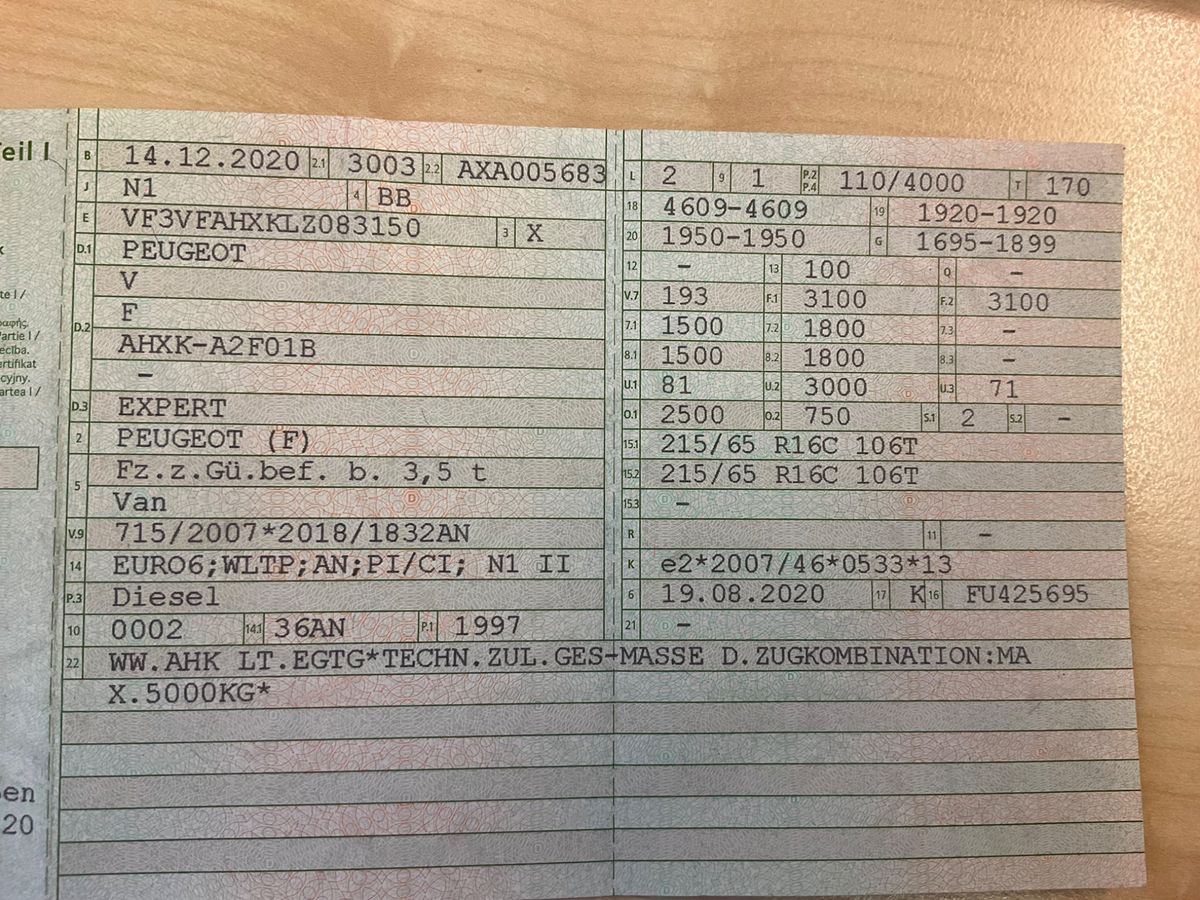 Teil I
B 14.12.2020 2.1 3003 2.2 AXA005683
J N1 4 BB
E VF3VFAHXKLZ083150 3 X
D.1 PEUGEOT
V
D.2 F
AHXK-A2F01B
–
D.3 EXPERT
2 PEUGEOT (F)
5 Fz.z.Gü.bef. b. 3,5 t
Van
V.9 715/2007*2018/1832AN
14 EURO6;WLTP;AN;PI/CI; N1 II
P.3 Diesel
10 0002 14.1 36AN P.1 1997
L 2 9 1 P.2 P.4 110/4000 T 170
18 4609-4609 19 1920-1920
20 1950-1950 G 1695-1899
12 – 13 100 Q –
V.7 193 F.1 3100 F.2 3100
7.1 1500 7.2 1800 7.3 –
8.1 1500 8.2 1800 8.3 –
U.1 81 U.2 3000 U.3 71
O.1 2500 O.2 750 S.1 2 S.2 –
15.1 215/65 R16C 106T
15.2 215/65 R16C 106T
15.3 –
R 11 –
K e2*2007/46*0533*13
6 19.08.2020 17 K 16 FU425695
21 –
22 WW.AHK LT.EGTG*TECHN.ZUL.GES-MASSE D.ZUGKOMBINATION:MA
X.5000KG*
te I /
Partie I /
ecība.
ertifikat
cyjny.
artea I /
en
20